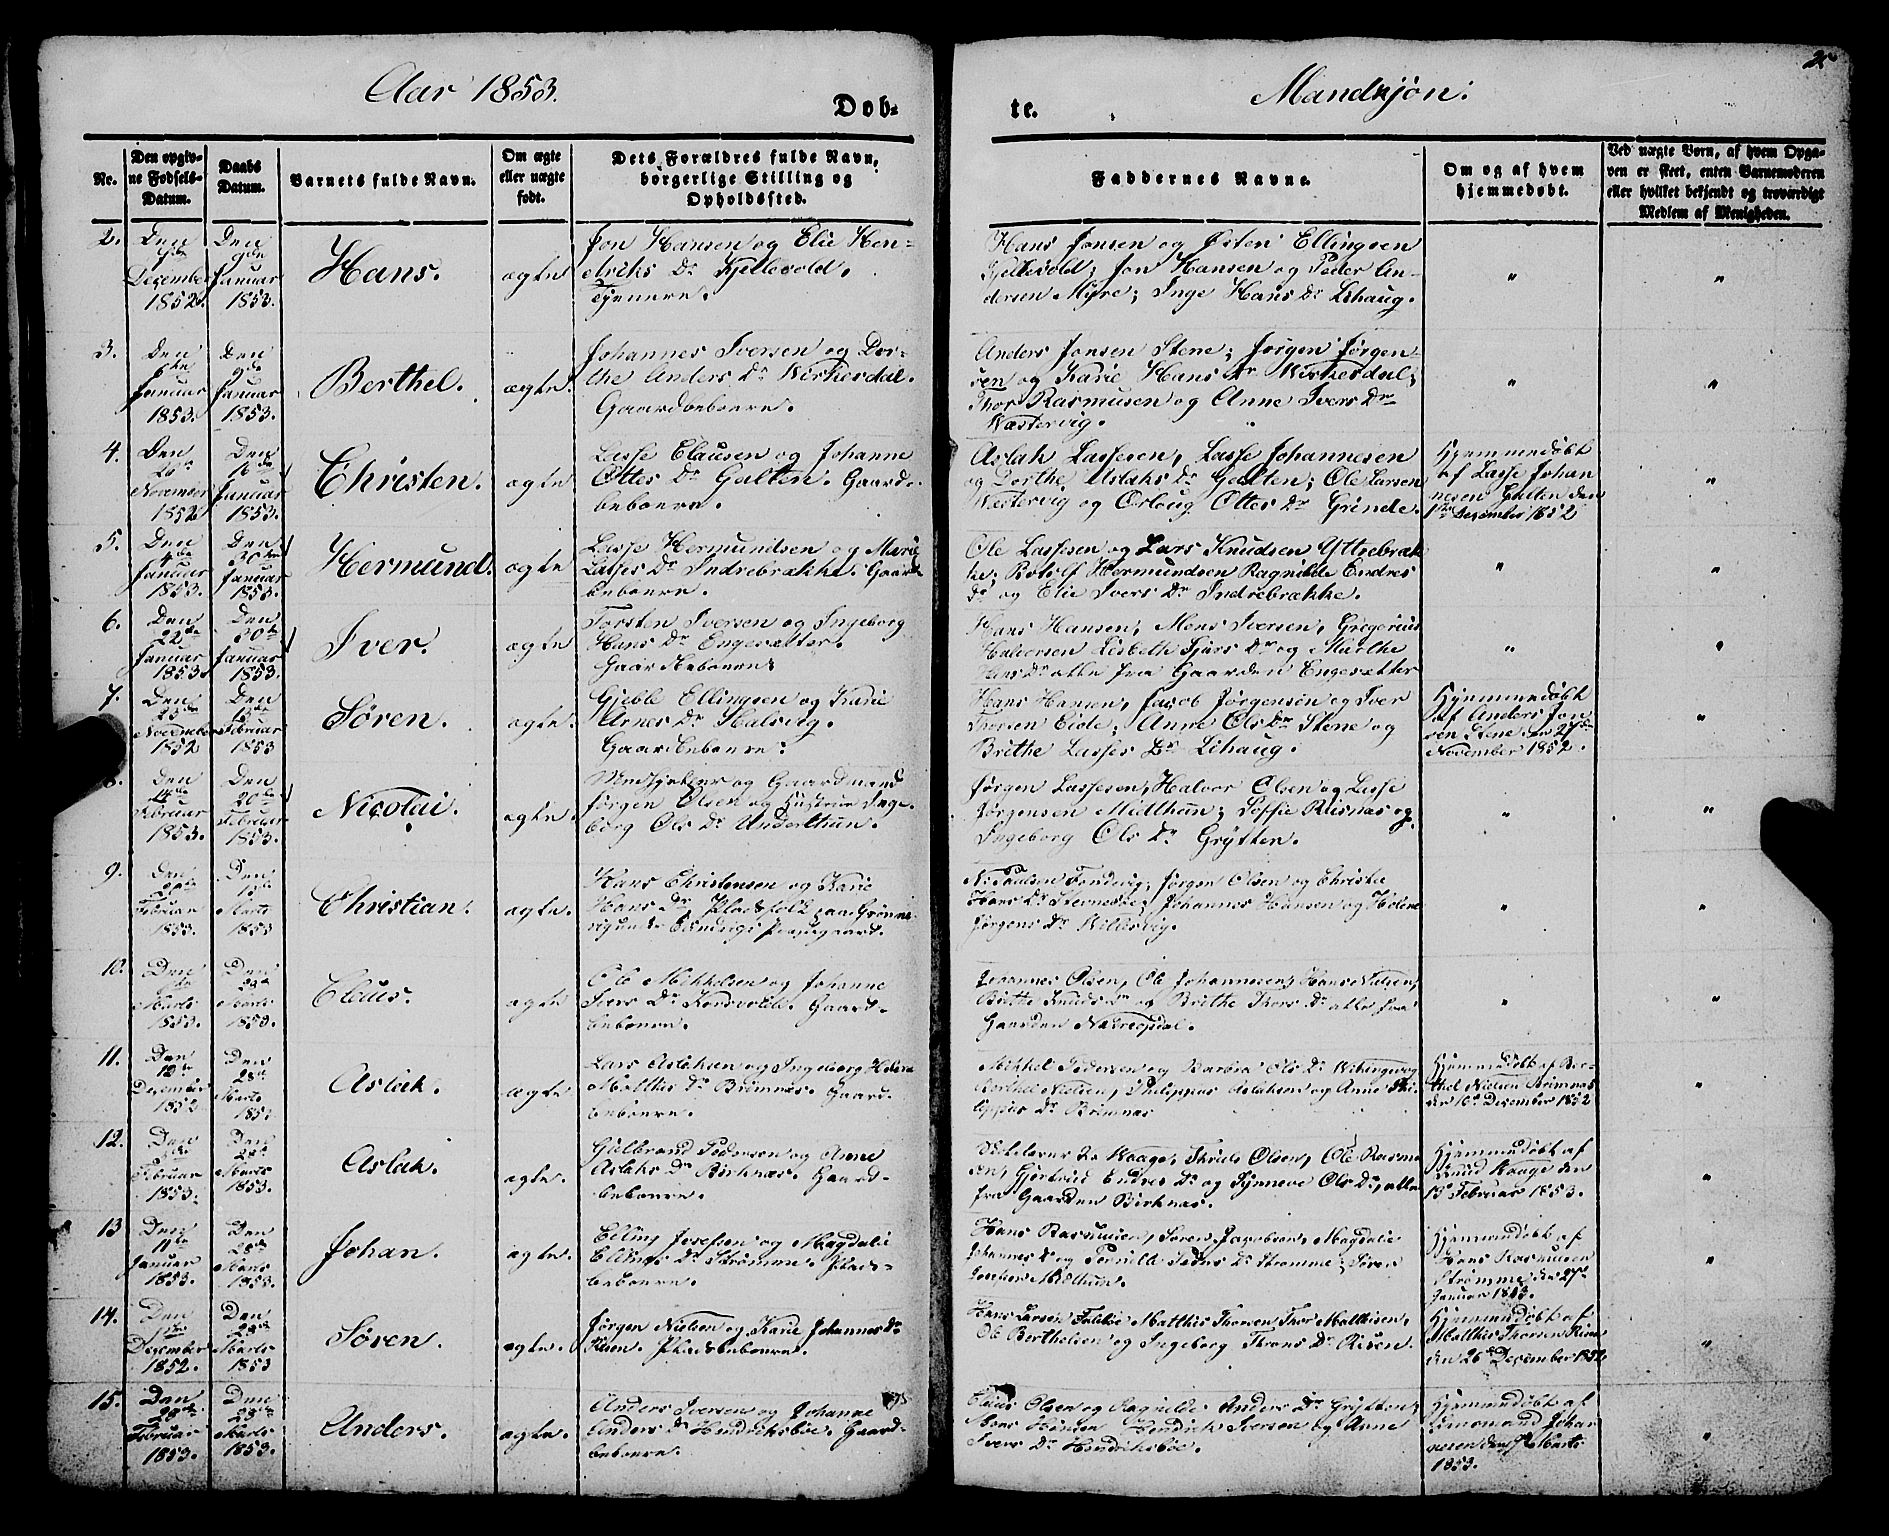 Aar 1853.
Døb-
te.
Mandkjøn:
Nr.
Den opgiv-
ne Fødsels-
Datum.
Daabs
Datum.
Barnets fulde Navn.
Om ægte
eller uægte
født.
Dets Forældres fulde Navn,
borgerlige Stilling og
Opholdssted.
Faddernes Navne.
Om og af hvem
hjemmedøbt.
Ved uægte Børn, af hvem Opga-
ven er skeet, enten Barnemoderen
eller hvilket bekjendt og troværdigt
Medlem af Menigheden.
2.
Den
December
1852.
Den
9de
Januar
1853.
Hans.
ægte
Jon Hansen og Elie Hen-
driks Dr Kjellevold.
Tjenere.
Hans Jonsen og Østen Ellingsen
Kjellevold; Jon Hansen og Peder An-
dersen Myre; Inge Hans Dr Lihaug.
3.
Den
Januar
1853.
Den
9de
Januar
1853.
Berthel.
ægte.
Johannes Iversen og Dor-
the Anders Dr Wirkesdal.
Gaardbeboere.
Anders Jonsen Stene; Jørgen Jørgen-
sen og Karie Hans Dr Wirkesdal;
Thor Rasmusen og Anne Ivers Dr
Wæstervig.
4.
Den
November
1852
Den
16de
Januar
1853.
Christen.
ægte
Lasse Clausen og Johanne
Ottes Dr Galten. Gaard-
beboere.
Aslak Lassesen, Lasse Johannesen
og Dorthe Aslaks Dr Galten; Ole Larsen
Wæstervig og Orloug Ottes Dr Grinde.
Hjemmedøbt
af Lasse Johan
nesen Galten den
December 1852
5.
Den
4de
Januar
1853.
Den
30te
Januar
1853.
Hermund.
ægte
Lasse Hermundsen og Marie
Lasses Dr Indrebrække. Gaard
beboere.
Ole Lassesen og Lars Knudsen Yttrebræk
ke; Rotolf Hermundsen Ragnilde Endres
Dr og Elie Ivers Dr Indrebrække.
6.
Den
22de
Januar
1853.
Den
30te
Januar
1853.
Iver.
ægte
Torsten Iversen og Ingeborg
Hans Dr Engesætter.
Gaardbeboere.
Hans Hansen, Mons Iversen, Gregorius
Halvorsen Lisbeth Sjurs Dr og Marthe
Hans Dr alle fra Gaarden Engesætter
7.
Den
November
1852
Den
13de
Februar
1853
Søren.
ægte.
Gjeble Ellingsen og Karie
Arnes Dr Halsvig.
Gaardbeboere.
Hans Hansen, Jacob Jørgensen og Iver
Iversen Eide; Anne Ols Dr Stene og
Brithe Lasses Dr Lihaug.
Hjemmedøbt
af Anders Jon
sen Stene den 27de
November 1852.
8.
Den
14de
Februar
1853.
Den
20de
Februar
1853.
Nicolai.
ægte.
og Gaardmand
Jørgen Olsen og Hustrue Inge-
borg Ols Dr Underthun.
Jørgen Lassesen, Halvor Olsen og Lasse
Jørgensen Midthun; Sophie Risnæs og
Ingeborg Ols Dr Grytten.
9.
Den
Februar
1853.
Den
13de
Marts
1853
Christian.
ægte.
Hans Christensen og Karie
Hans Dr Pladsfolk paa Grønne
vig under Evindvigs Præstegaard.
N. Paulsen Tondevig; Jørgen Olsen og Christie
Hans Dr Johannes Hansen og Helene
Jørgens Dr Willesvig.
10.
Den
Marts
1853.
Den
Marts
1853.
Claus.
ægte
Ole Mikkelsen og Johanne
Ivers Dr Gaard-
beboere.
Johannes Olsen, Ole Johannesen, Hans Nilsen,
Brithe Knuds Dr og Brithe Thors Dr alle fra
Gaarden
11.
Den
12te
December
1852
Den
28de
Marts
1853
Aslak.
ægte
Lars Aslaksen og Ingeborg Helene
Matthis Dr Brimnæs. Gaard-
beboere.
Mikkel Pedersen og Barbra Ols Dr
Berthel Nielsen, Philippus Aslaksen og Anne Phi-
lippus Dr Brimnæs
Hjemmedøbt af Ber-
thel Nielsen Brimnæs
den 16de December 1852
12.
Den
Februar
1853.
Den
28de
Marts
1853.
Aslak.
ægte.
Gulbrand Pedersen og Anne
Aslaks Dr Birknæs. Gaard-
beboere.
Kaage, Truls Olsen, Ole Rasmu
sen, Gjertrud Endres Dr og Synneve Ols Dr, alle
fra Gaarden Birknæs.
Hjemmedøbt af
Knud Kaage den
Februar 1853.
13
Den
11te
Januar
1853.
Den
28de
Marts
1853.
Johan.
ægte.
Elling Josefsen og Magdalie
Ellings Dr Strømme. Plads-
beboere.
Hans Rasmusen, Søren Jacobsen, Magdalie
Johannes Dr og Pernille Peders Dr Strømme; Søren
Josefsen Midthun.
Hjemmedøbt af
Hans Rasmusen
Strømme den 27de
Januar 1853.
14.
Den
December
1852.
Den
28de
Marts
1853
Søren.
ægte.
Jørgen Nielsen og Karie Johannes Dr
Risen. Pladsbeboere.
Hans Larsen Matthis Thorsen Thor Mathisen,
Ole Berthelsen og Ingeborg Throns Dr Risen.
Hjemmedøbt af
Matthis Thorsen Risen
den 26de December 1852
15.
Den
28de
Februar
1853.
Den
28de
Marts
1853.
Anders.
ægte.
Anders Iversen og Johanne
Anders Dr Hendriksbøe. Gaard-
beboere.
Olsen og Ragnilde Anders Dr Grytten;
Mons Hansen Hendrik Iversen og Anne
Ivers Dr Hendriksbøe.
Hjemmedøbt af
Johan
nesen den Marts
1853.